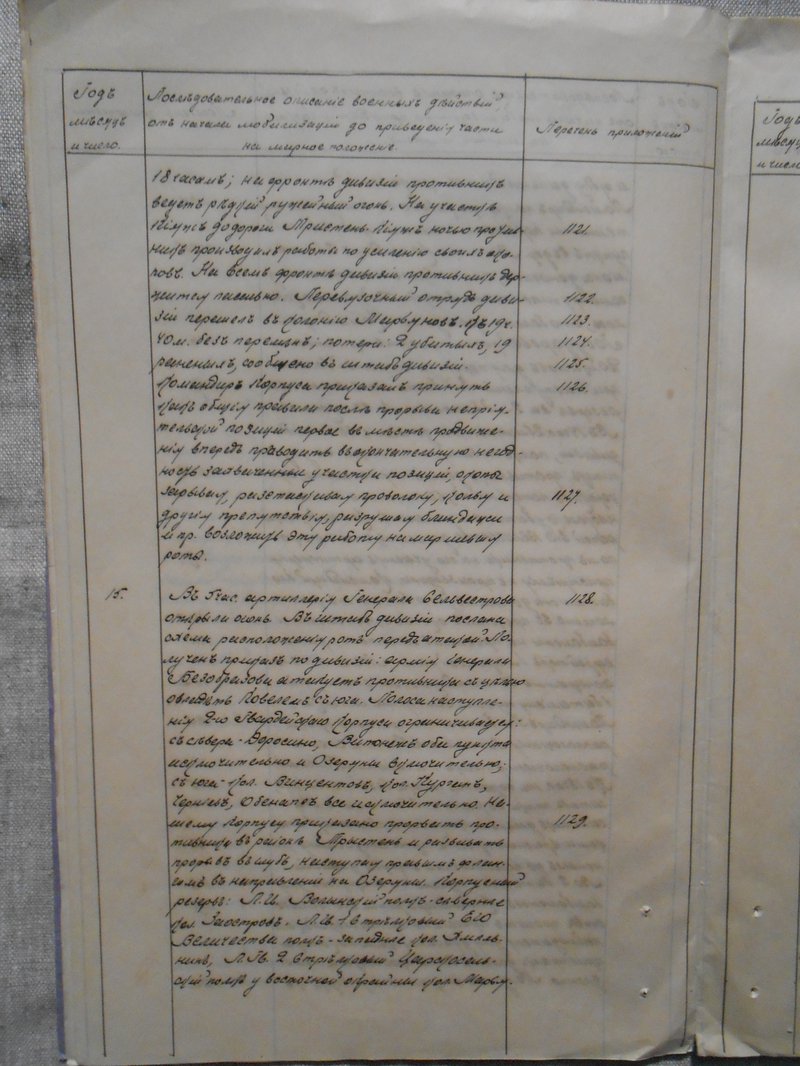 Годъ
мѣсяцъ
и число.
Послѣдовательное описаніе военныхъ дѣйствій
отъ начала мобилизаціи до приведенія части
на мирное положеніе.
Перечень приложеній
18 часамъ; на фронтѣ дивизіи противникъ
ведетъ рѣдкій ружейный огонь. На участкѣ
до дороги Тристень ночью против- 1121.
никъ производилъ работы по усиленію своихъ око-
повъ. На всемъ фронтѣ дивизіи противникъ дер-
жится пассивно. Перевязочный отрядъ диви- 1122.
зіи перешелъ въ колонію въ 19 ч. 1123.
40 м. безъ перемѣнъ; потери: 2 убитыхъ, 19 1124.
раненыхъ, сообщено въ штабъ дивизіи. 1125.
Командиръ Корпуса приказалъ принять 1126.
какъ общее правило послѣ прорыва непрія-
тельской позиціи первое въ мѣстѣ продвиже-
нія впередъ приводить въ окончательную негод-
ность захваченные участки позицій, окопы
зарывая, растаскивая проволоку, колья и 1127.
другія препятствія, разрушая блиндажи
и пр. возложить эту работу на маршевыя
роты.
15. Въ час. артиллерія Генерала Сельвестрова 1128.
открыла огонь. Въ штабъ дивизіи послана
схема расположенія ротъ передъ атакой. По-
лученъ приказъ по дивизіи: армія Генерала
Безобразова атакуетъ противника съ цѣлью
овладѣть Ковелемъ съ юга. Полоса наступле-
нія 2-го Гвардейскаго Корпуса ограничивается:
съ сѣвера - Доросино, Витонежъ оба пункта
исключительно и Озеряны включительно;
съ юга - кол. Винцентовъ, кол. Кургань,
все исключительно. На-
шему Корпусу приказано прорвать про- 1129.
тивника въ районѣ Трыстень и развивать
прорывъ въ глубь, наступая правымъ флан-
гомъ въ направленіи на Озеряны. Корпусный
резервъ: Л.Гв. Волынскій полкъ - сѣвернѣе
кол. Заостровъ. Л.Гв. 1 Стрѣлковый ЕГО
ВЕЛИЧЕСТВА полкъ - западнѣе кол. Хмѣль-
никъ, Л.Гв. 2 Стрѣлковый Царскосель-
скій полкъ у восточной окраины кол.
Годъ
мѣсяцъ
и число